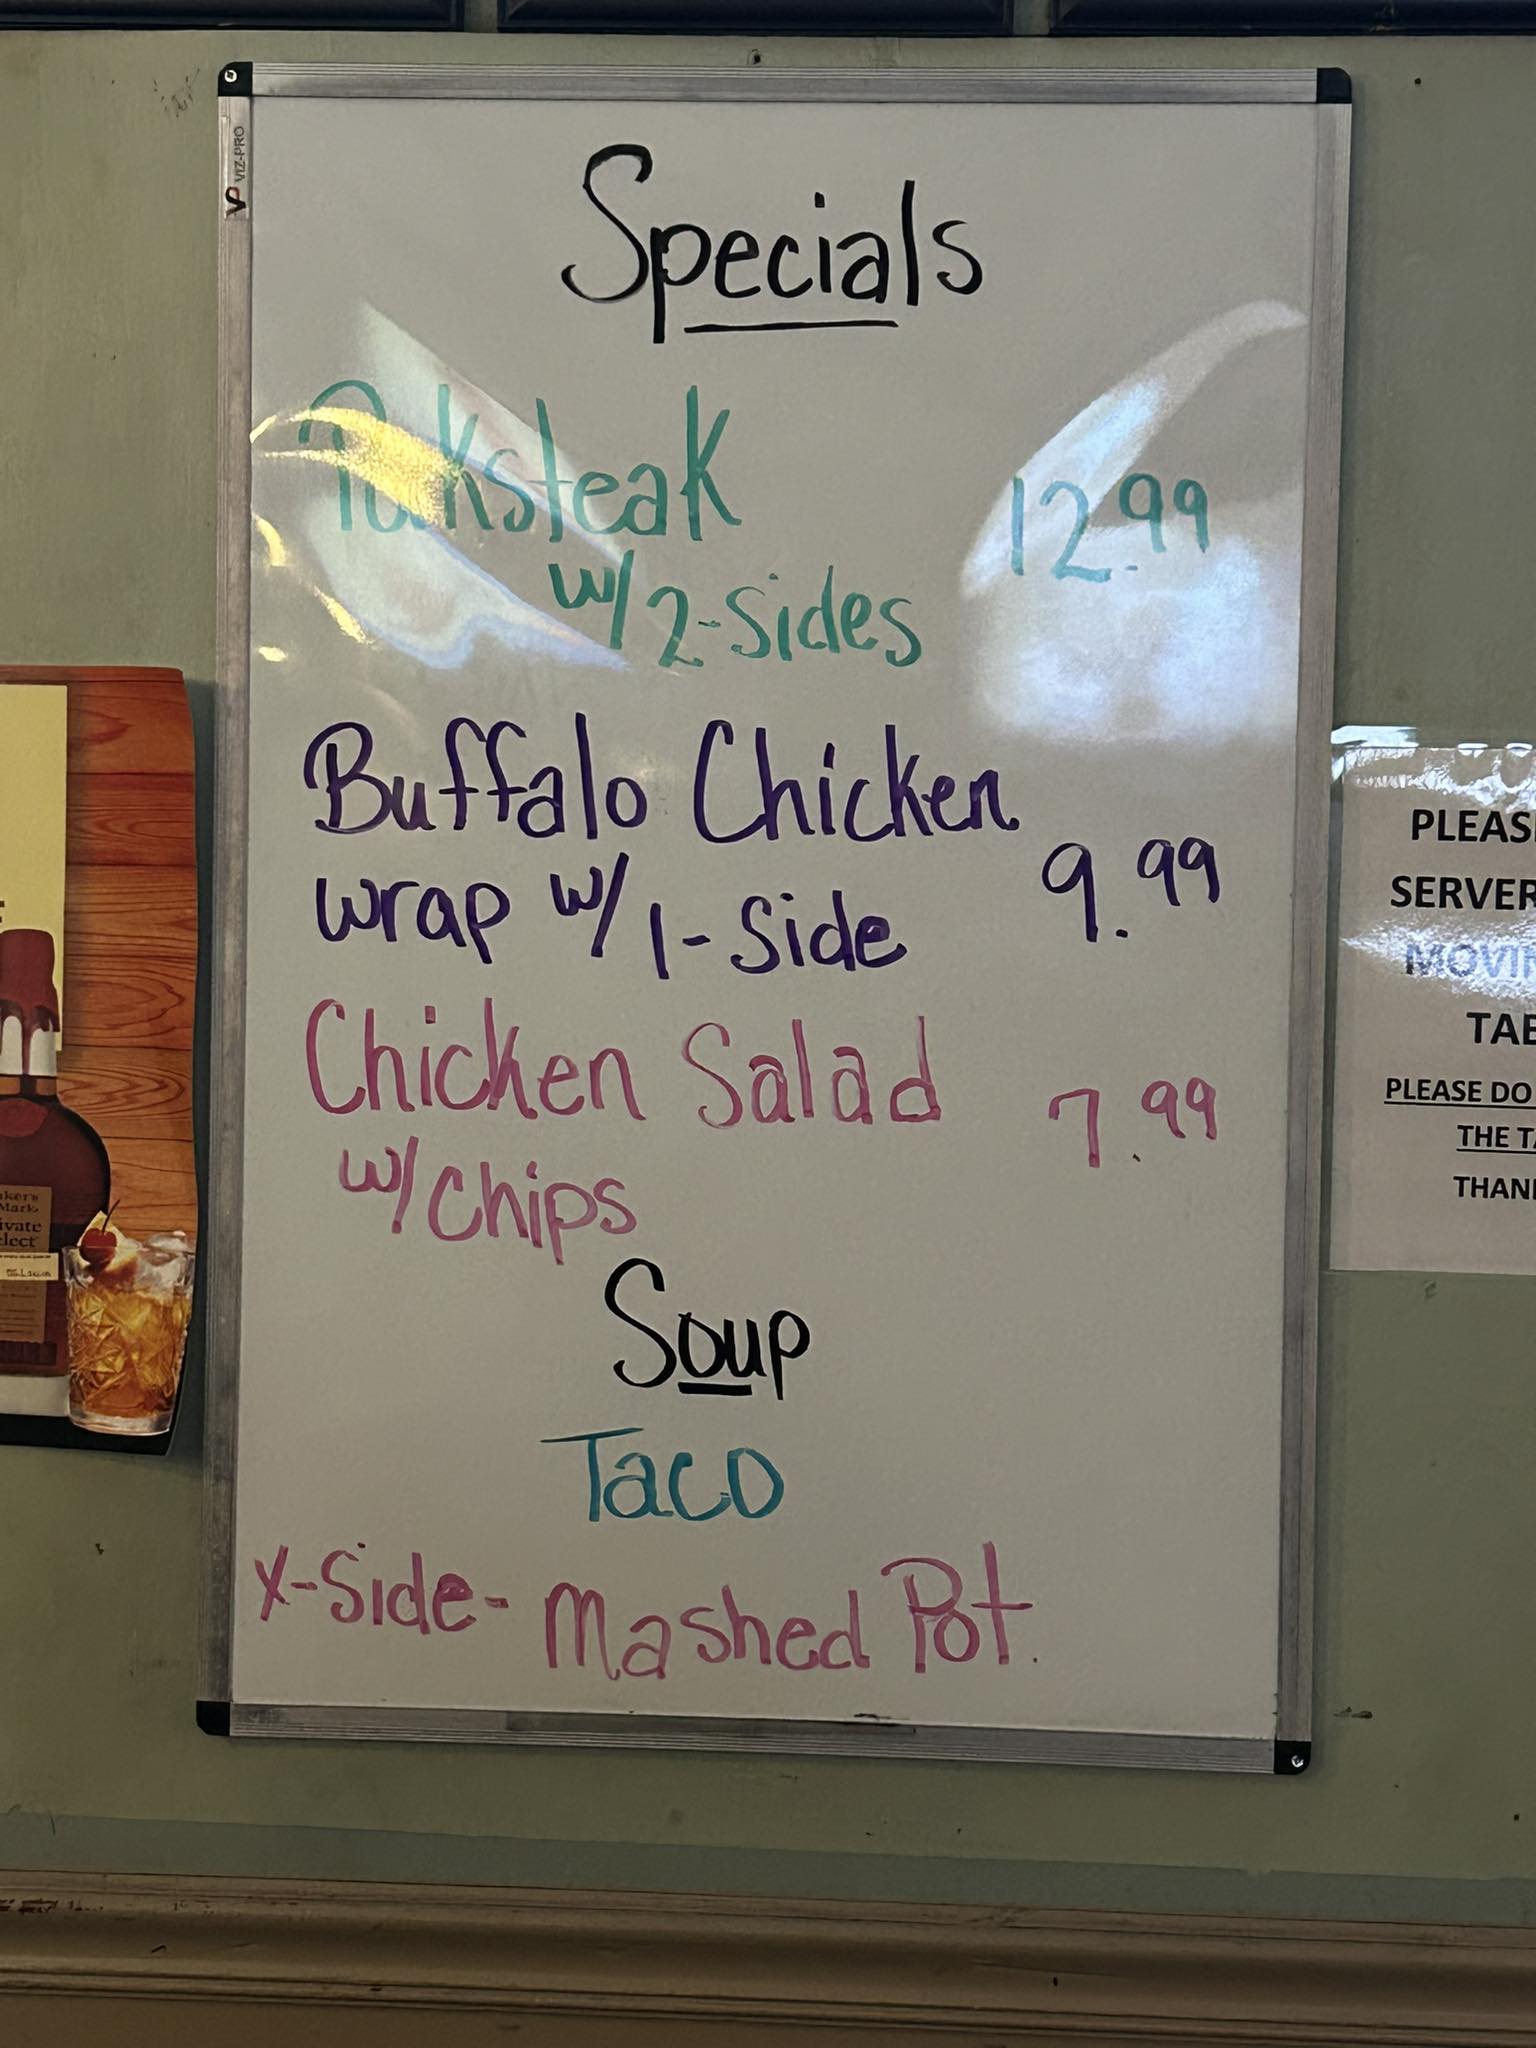 VP VIZ-PRO
Specials
Porksteak
w/ 2-Sides
12.99
Buffalo Chicken
wrap w/ 1-Side
9.99
Chicken Salad
w/ chips
7.99
Soup
Taco
X-Side- Mashed Pot.
Mark
PLEAS
SERVER
MOVIN
TAB
PLEASE DO
THE TA
THAN